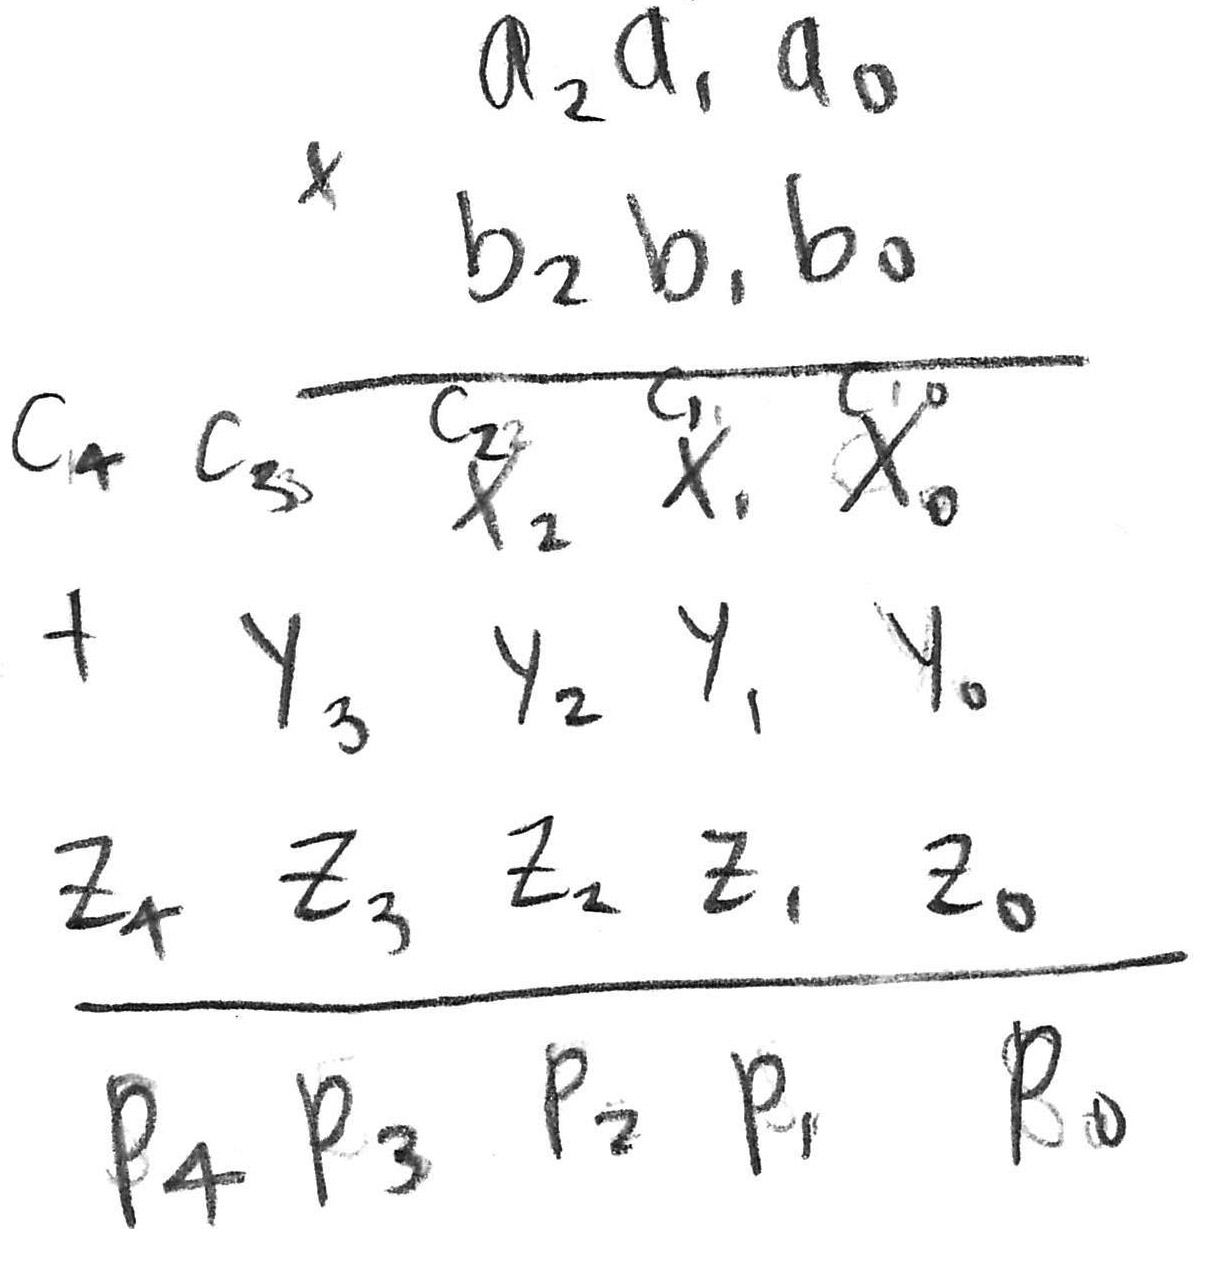 a₂ a₁ a₀
×
b₂ b₁ b₀
C₄ C₃ C₂ C₁ C₀
X₂ X₁ X₀
+ Y₃ Y₂ Y₁ Y₀
Z₄ Z₃ Z₂ Z₁ Z₀
P₄ P₃ P₂ P₁ P₀